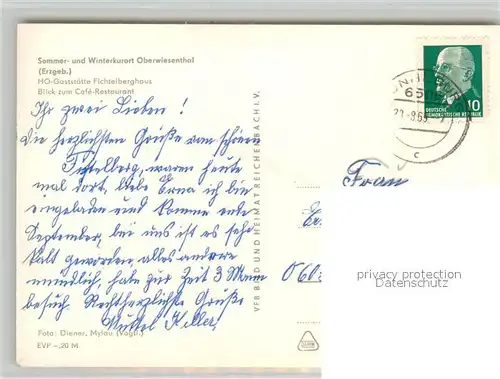 Sommer- und Winterkurort Oberwiesenthal
(Erzgeb.)
HO-Gaststätte Fichtelberghaus
Blick zum Café-Restaurant
Ihr zwei Lieben!
Die herzlichsten Grüße vom schönen
Fichtelberg, waren heute
mal dort, liebe Erna ich bin
eingeladen und komme ende
September, bei uns ist es sehr
kalt geworden, alles andere
mündlich, habe zur Zeit 3 Mann
besuch. Rechtherzlichste Grüße
Muttel Hiller
Foto: Diener, Mylau (Vogtl.)
EVP –,20 M
VEB BILD UND HEIMAT REICHENBACH I. V.
650
c
DEUTSCHE
DEMOKRATISCHE REPUBLIK
10
Frau
Er.
060
privacy protection
Datenschutz